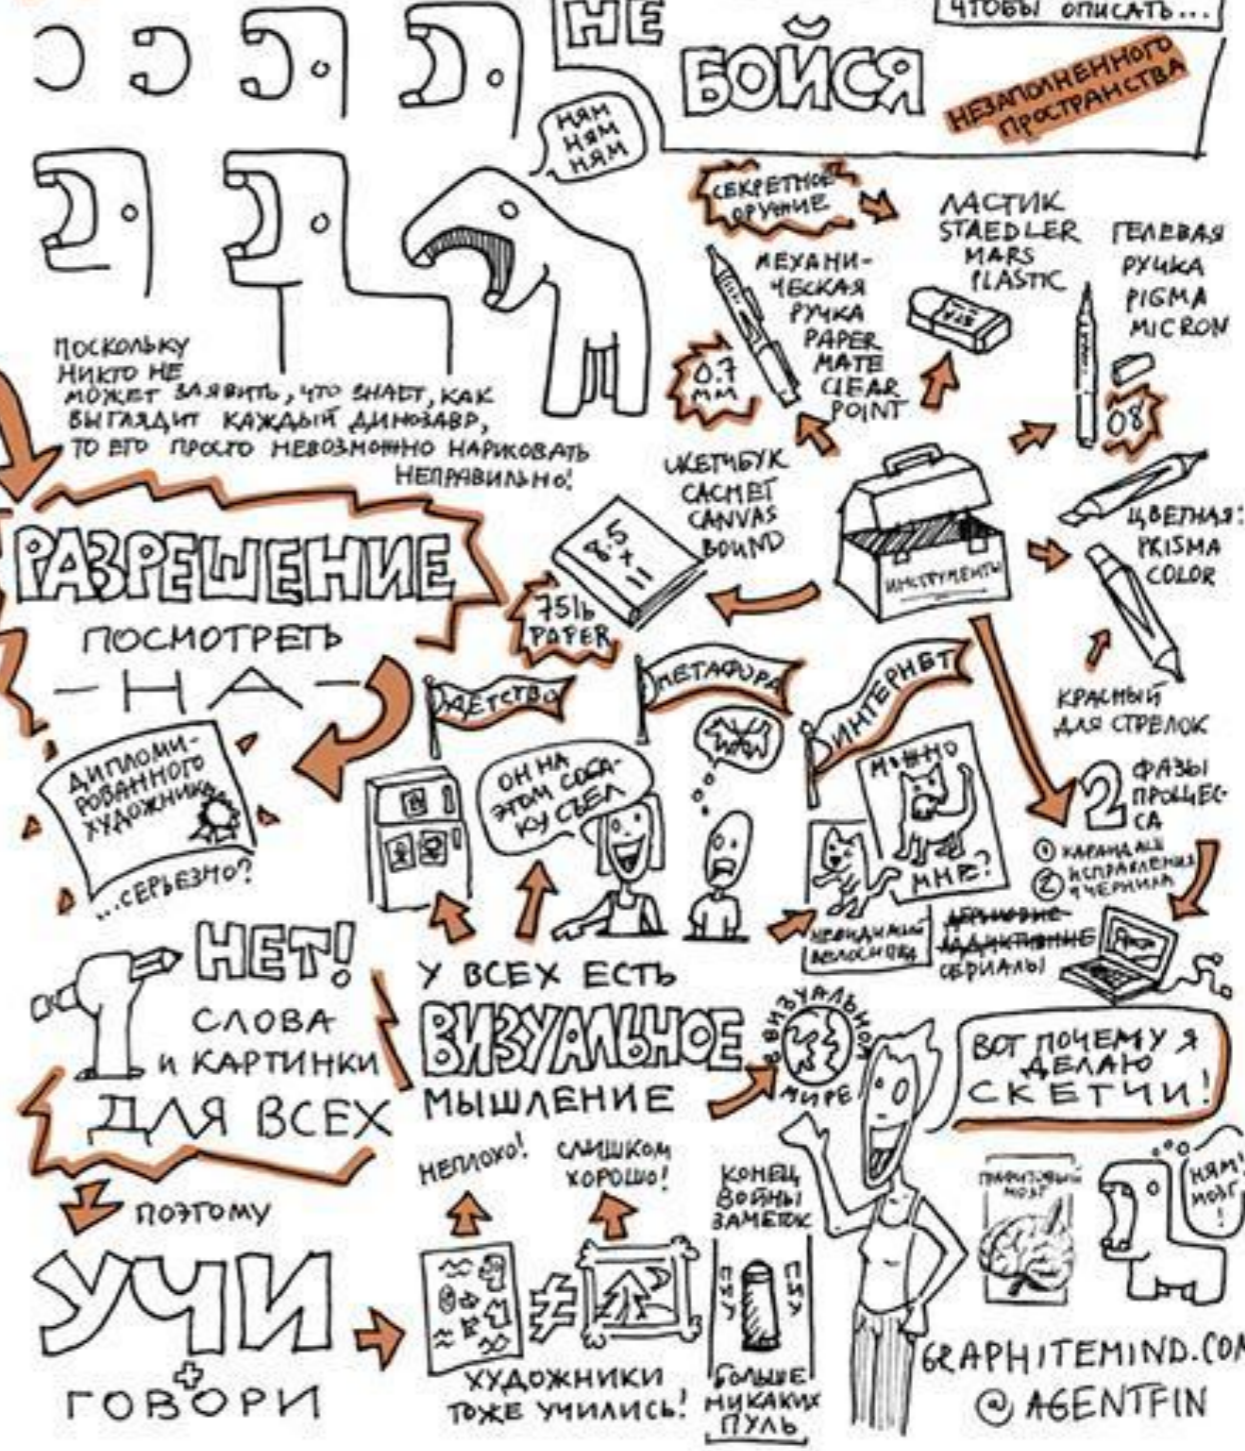 ЧТОБЫ ОПИСАТЬ...
НЕ
БОЙСЯ
НЕЗАПОЛНЕННОГО
ПРОСТРАНСТВА
НЯМ
НЯМ
НЯМ
ПОСКОЛЬКУ
НИКТО НЕ
МОЖЕТ ЗАЯВИТЬ, ЧТО ЗНАЕТ, КАК
ВЫГЛЯДИТ КАЖДЫЙ ДИНОЗАВР,
ТО ЕГО ПРОСТО НЕВОЗМОЖНО НАРИСОВАТЬ
НЕПРАВИЛЬНО!
СЕКРЕТНОЕ
ОРУЖИЕ
ЛАСТИК
STAEDLER
MARS
PLASTIC
ГЕЛЕВАЯ
РУЧКА
PIGMA
MICRON
08
МЕХАНИ-
ЧЕСКАЯ
РУЧКА
PAPER
MATE
CLEAR
POINT
0.7
ММ
СКЕТЧБУК
CACHET
CANVAS
BOUND
8.5
x
11
75lb
PAPER
ИНСТРУМЕНТЫ
ЦВЕТНАЯ:
PRISMA
COLOR
КРАСНЫЙ
ДЛЯ СТРЕЛОК
РАЗРЕШЕНИЕ
ПОСМОТРЕТЬ
-НА-
ДИПЛОМИ-
РОВАННОГО
ХУДОЖНИКА
...СЕРЬЕЗНО?
ДЕТСТВО
МЕТАФОРА
ИНТЕРНЕТ
ОН НА
ЭТОМ СОБА-
КУ СЪЕЛ
МОЖНО
МНЕ?
НЕВИДИМЫЙ
ВЕЛОСИПЕД
2
ФАЗЫ
ПРОЦЕС-
СА
1 КАРАНДАШ
2 ИСПРАВЛЕНИЯ
ЧЕРНИЛА
АДДИКТИВНЫЕ
СЕРИАЛЫ
НЕТ!
СЛОВА
И КАРТИНКИ
ДЛЯ ВСЕХ
У ВСЕХ ЕСТЬ
ВИЗУАЛЬНОЕ
МЫШЛЕНИЕ
В ВИЗУАЛЬНОМ
МИРЕ
ВОТ ПОЧЕМУ Я
ДЕЛАЮ
СКЕТЧИ!
ПОЭТОМУ
УЧИ
+
ГОВОРИ
НЕПЛОХО!
СЛИШКОМ
ХОРОШО!
≠
ХУДОЖНИКИ
ТОЖЕ УЧИЛИСЬ!
КОНЕЦ
ВОЙНЫ
ЗАМЕТОК
ПИУ
ПИУ
БОЛЬШЕ
НИКАКИХ
ПУЛЬ
ГРАФИТОВЫЙ
МОЗГ
НЯМ!
МОЗГ
!
GRAPHITEMIND.COM
@AGENTFIN